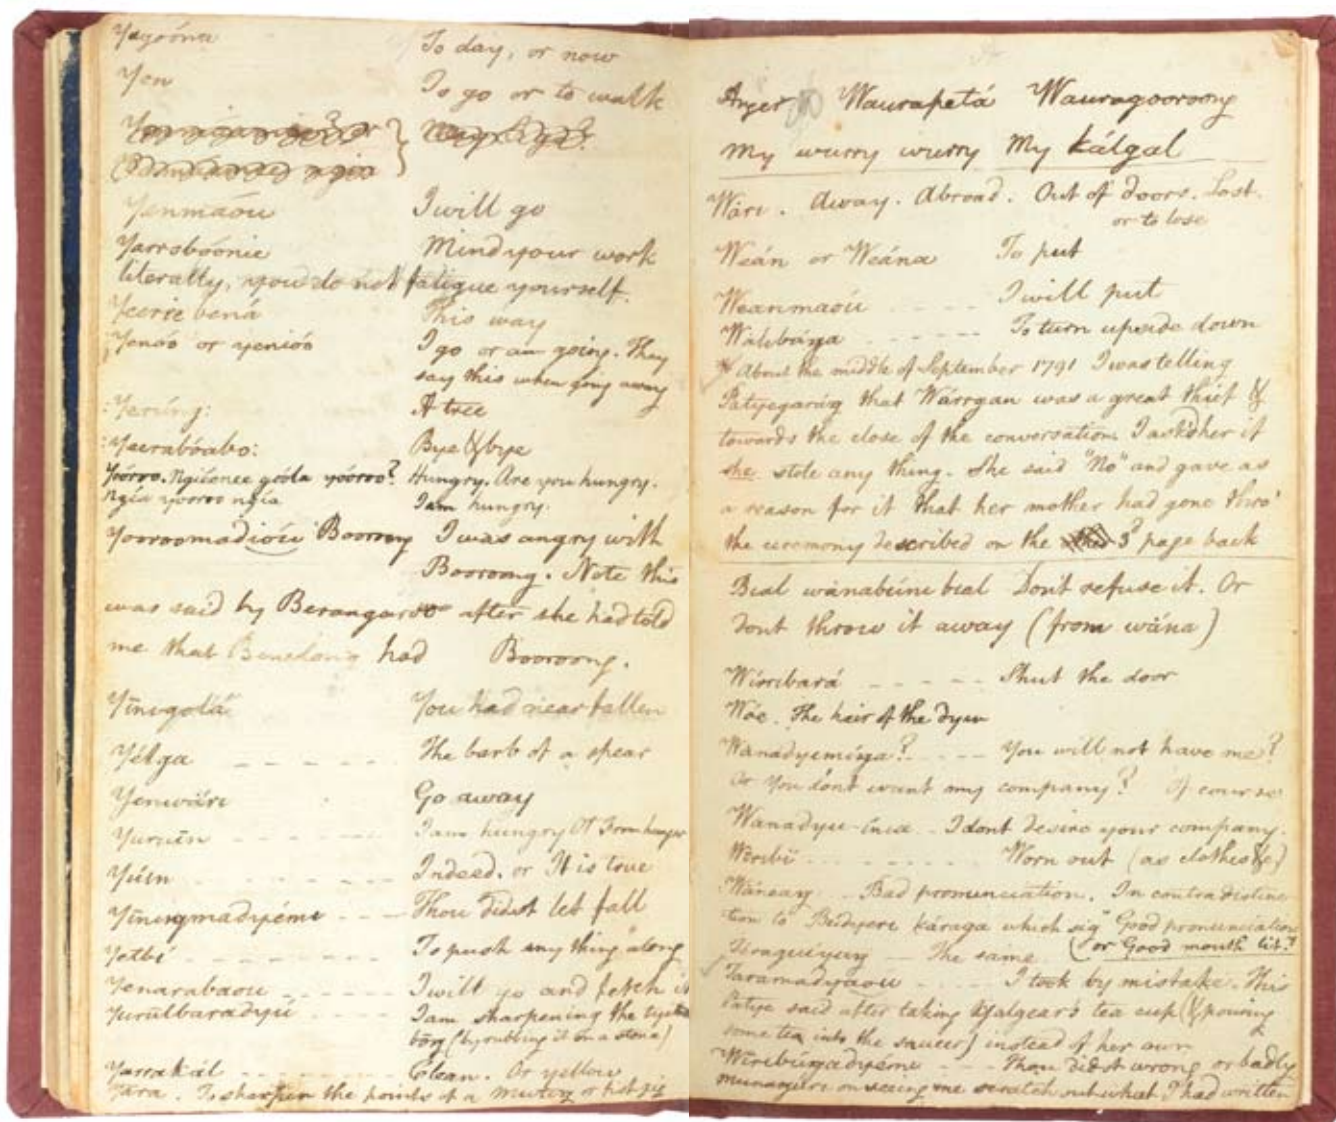 Yagoóna To day, or now
Yen To go or to walk
Yenmaóu I will go
Yarrsbóonie Mind your work
literally, you do not fatigue yourself.
Yeerie bená This way
Yenóó or yenióó I go or am going. They
say this when going away
:Yerúng: A tree
:Yeerabóabo: Bye & bye
Yóóroo. Ngíénee góóla yóóroo? Hungry. Are you hungry.
ngía yooroo ngía I am hungry.
Yooroomadióú Booroong I was angry with
Booroong. Note this
was said by Berangaroo after she had told
me that Benelang had Booroong.
Yīnigolá You had near fallen
Yélga The barb of a spear
Yenwári Go away
Yuruín I am hungry
Yúin Indeed. or It is true
Yīningmadyémi Thou didst let fall
Yetbi To push any thing along
Yenarabaou I will go and fetch it
Yurúlbaradyú I am sharpening the
(by rubbing it on a stone)
Yarrakál Clean. Or yellow
Yára. To sharpen the points of a muting or fish gig
Anger Waurapetá Wauragooroong
My wurry wurry My kálgal
Wári. Away. Abroad. Out of doors. Lost.
or to lose
Weán or Weána To put
Weanmaóu I will put
Wálibánga To turn upside down
About the middle of September 1791 I was telling
Patyegaráng that Wárrgan was a great thief &
towards the close of the conversation I asked her if
she stole any thing. She said "No" and gave as
a reason for it that her mother had gone thro'
the ceremony described on the 3d page back
Beal wánabúni beal Dont refuse it. Or
dont throw it away (from wána)
Wírribará Shut the door
Wóe. The hair of the dyin
Wanadyemínga? You will not have me?
Or You don't want my company? Of course
Wanadyu-ínia I dont desire your company.
Wíribí Worn out (as clothes &c)
Wáneang Bad pronunciation. In contradistinc
tion to Búdyeri káraga which sigs Good pronunciation
(or Good mouth lit.?
The same
Taramadyaou I took by mistake. This
Patye said after taking tea cup (& pouring
some tea into the saucer) instead of her own
Wíribúngadyémi Thou didst wrong or badly
on seeing me scratch out what I had written